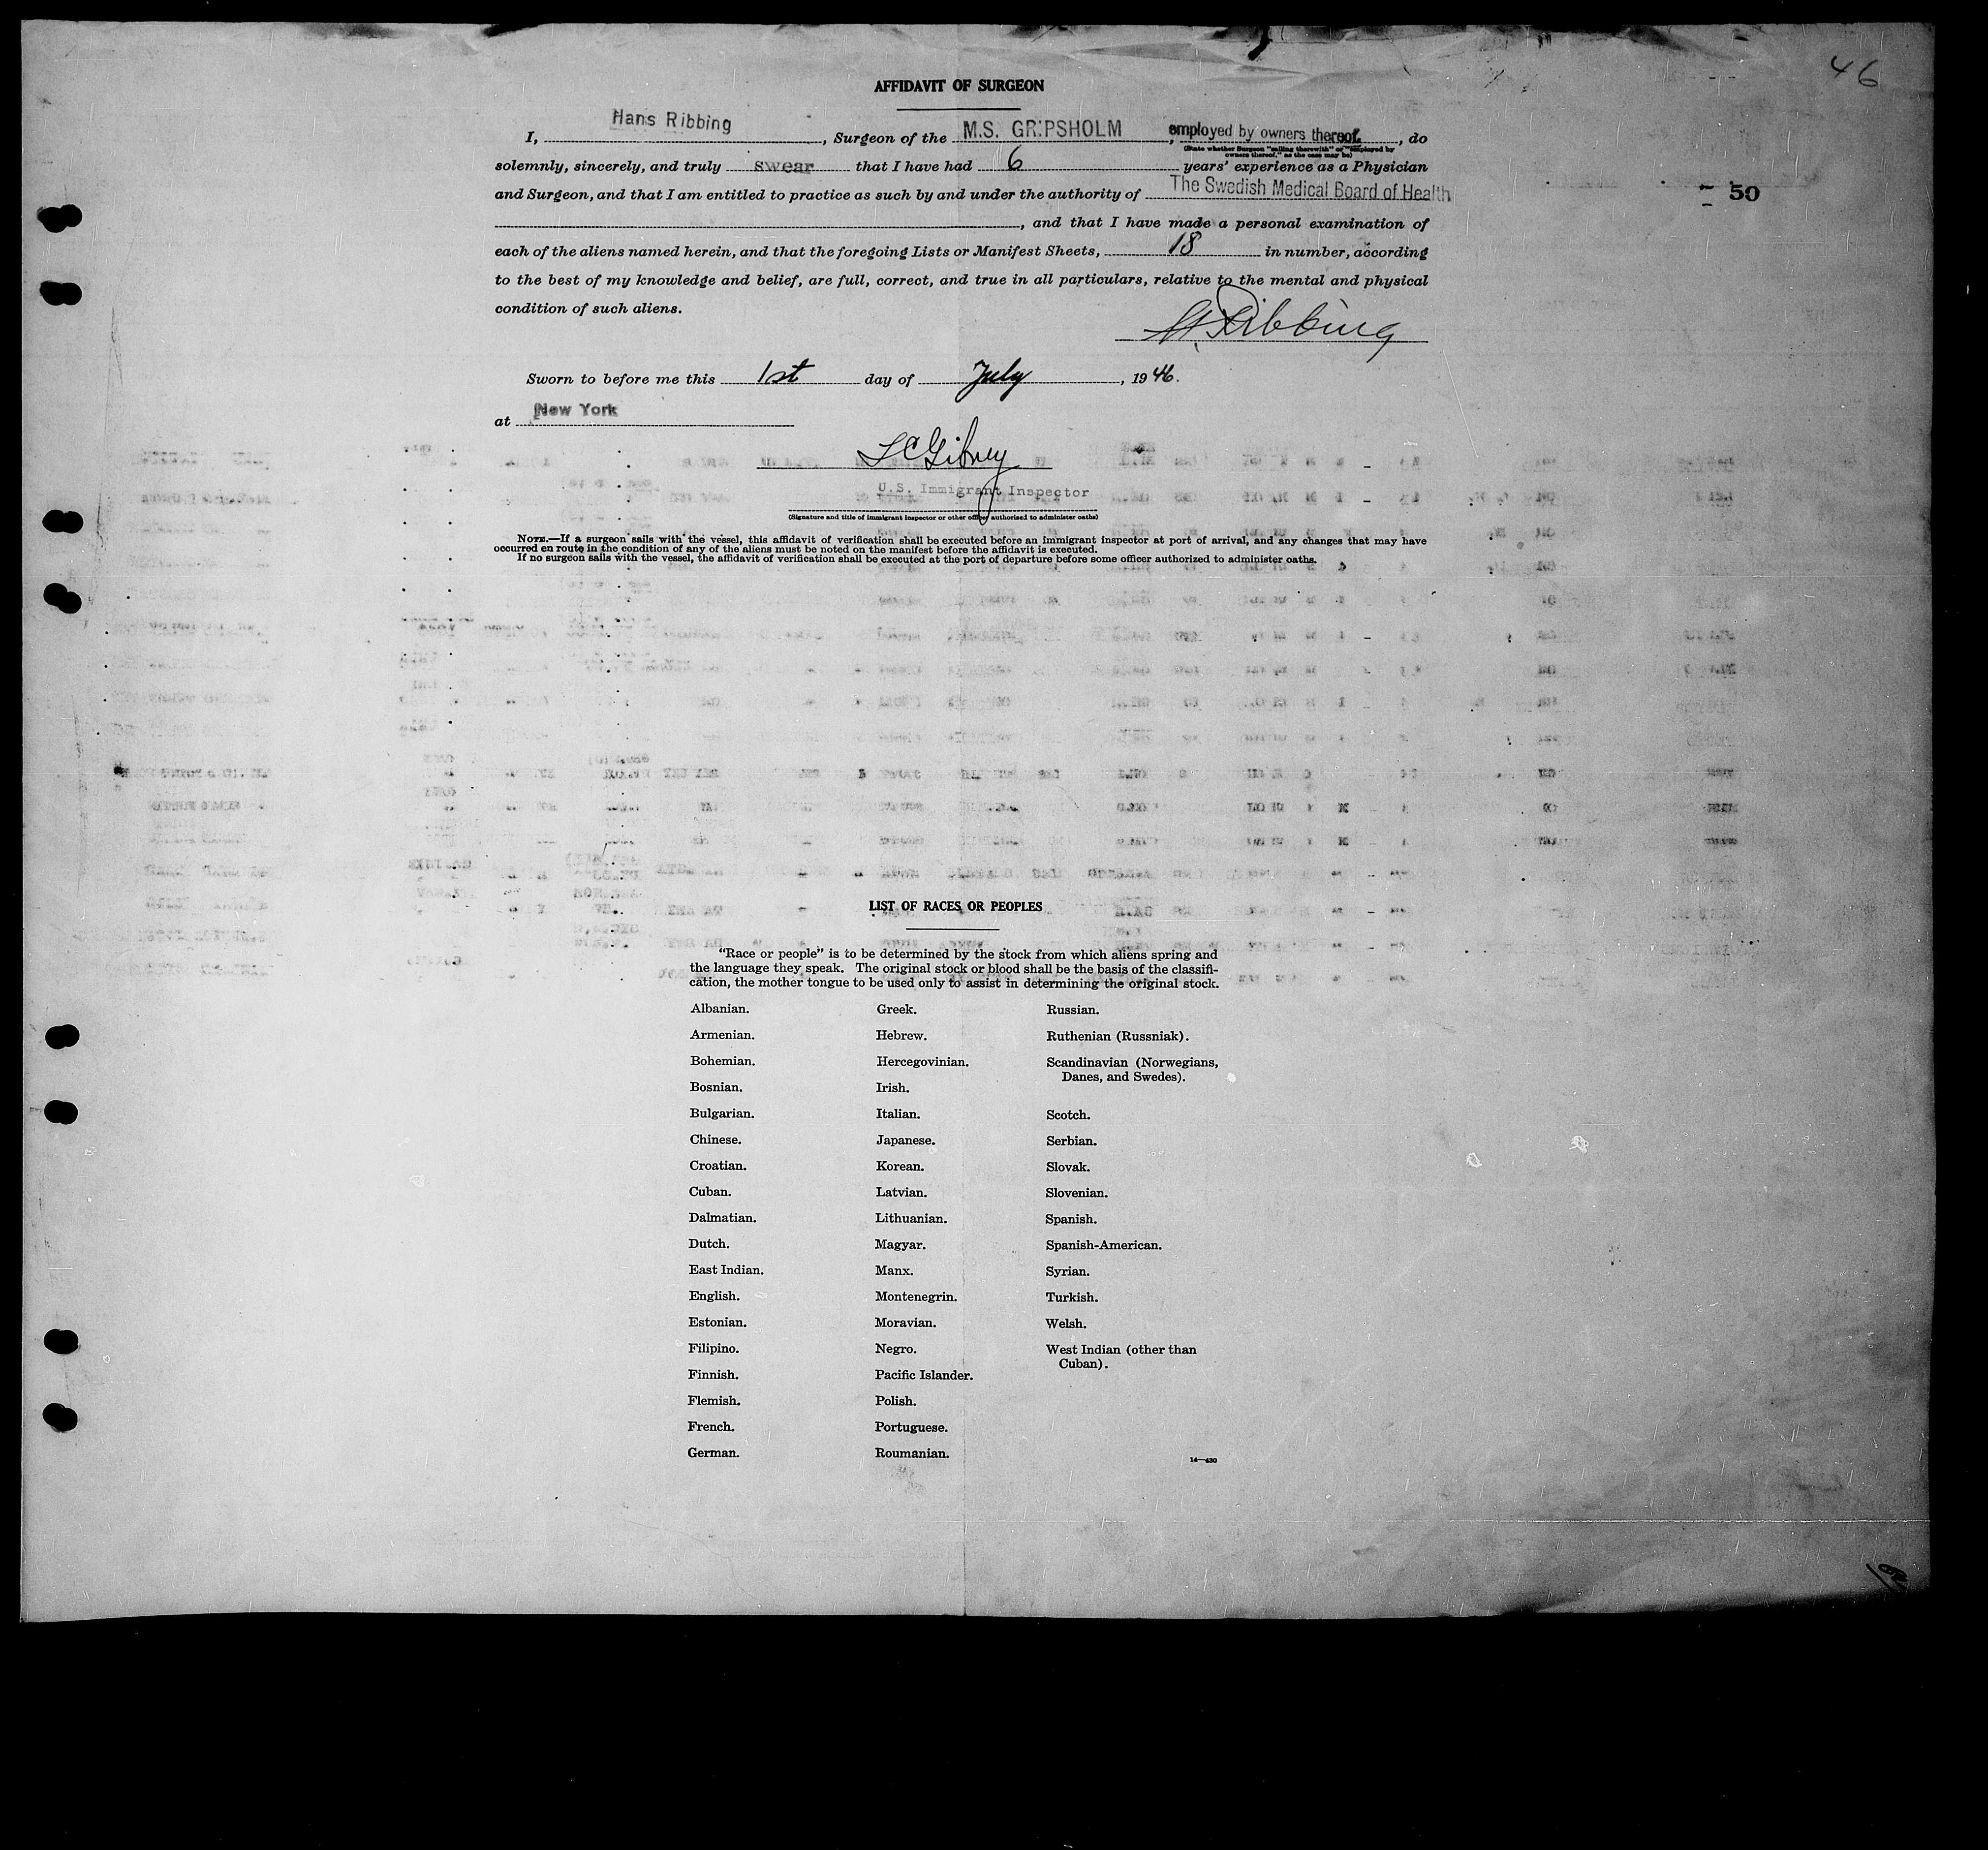 46
AFFIDAVIT OF SURGEON
I, Hans Ribbing, Surgeon of the M.S. GRIPSHOLM, employed by owners thereof, do
(State whether Surgeon "sailing therewith" or "employed by
owners thereof," as the case may be)
solemnly, sincerely, and truly swear that I have had 6 years' experience as a Physician
and Surgeon, and that I am entitled to practice as such by and under the authority of The Swedish Medical Board of Health
50
, and that I have made a personal examination of
each of the aliens named herein, and that the foregoing Lists or Manifest Sheets, 18 in number, according
to the best of my knowledge and belief, are full, correct, and true in all particulars, relative to the mental and physical
condition of such aliens.
H. Ribbing
Sworn to before me this 1st day of July, 1946.
at New York
U.S. Immigrant Inspector
(Signature and title of immigrant inspector or other officer authorized to administer oaths)
NOTE.—If a surgeon sails with the vessel, this affidavit of verification shall be executed before an immigrant inspector at port of arrival, and any changes that may have
occurred en route in the condition of any of the aliens must be noted on the manifest before the affidavit is executed.
If no surgeon sails with the vessel, the affidavit of verification shall be executed at the port of departure before some officer authorized to administer oaths.
LIST OF RACES OR PEOPLES
"Race or people" is to be determined by the stock from which aliens spring and
the language they speak. The original stock or blood shall be the basis of the classifi-
cation, the mother tongue to be used only to assist in determining the original stock.
Albanian.
Armenian.
Bohemian.
Bosnian.
Bulgarian.
Chinese.
Croatian.
Cuban.
Dalmatian.
Dutch.
East Indian.
English.
Estonian.
Filipino.
Finnish.
Flemish.
French.
German.
Greek.
Hebrew.
Hercegovinian.
Irish.
Italian.
Japanese.
Korean.
Latvian.
Lithuanian.
Magyar.
Manx.
Montenegrin.
Moravian.
Negro.
Pacific Islander.
Polish.
Portuguese.
Roumanian.
Russian.
Ruthenian (Russniak).
Scandinavian (Norwegians,
Danes, and Swedes).
Scotch.
Serbian.
Slovak.
Slovenian.
Spanish.
Spanish-American.
Syrian.
Turkish.
Welsh.
West Indian (other than
Cuban).
14—430